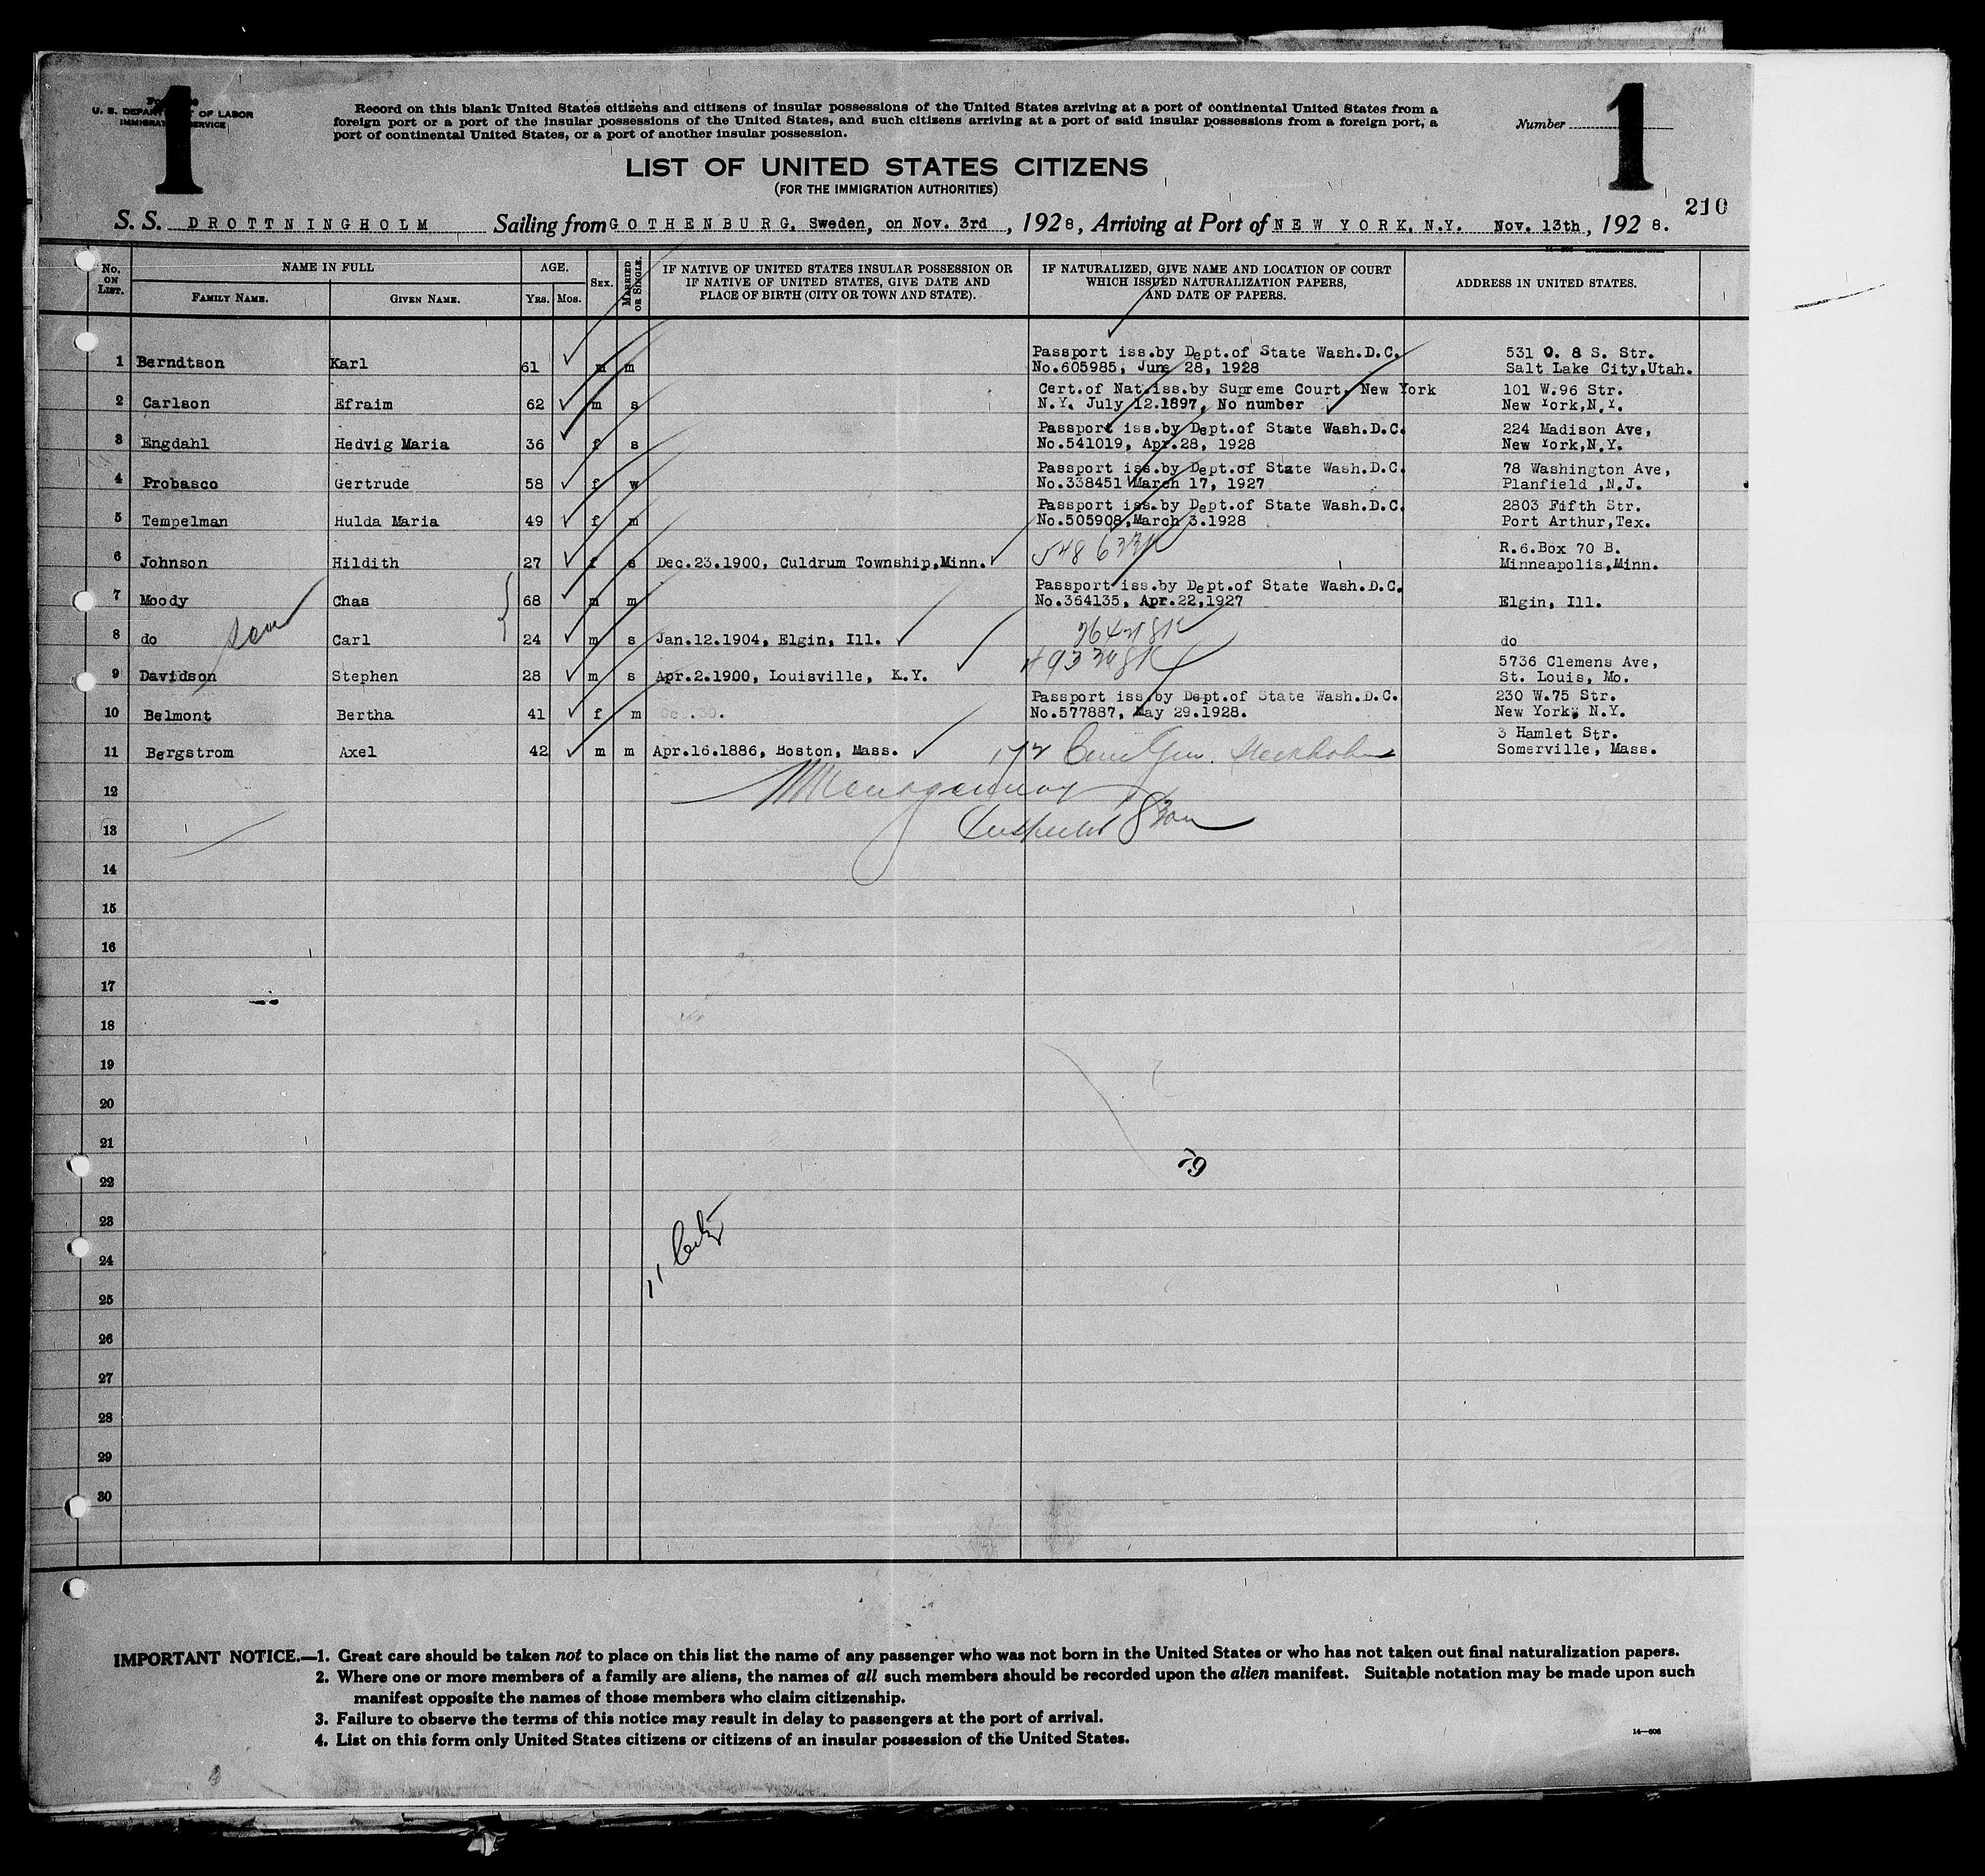 1
1
U. S. DEPARTMENT OF LABOR
IMMIGRATION SERVICE
Record on this blank United States citizens and citizens of insular possessions of the United States arriving at a port of continental United States from a
foreign port or a port of the insular possessions of the United States, and such citizens arriving at a port of said insular possessions from a foreign port, a
port of continental United States, or a port of another insular possession.
Number
LIST OF UNITED STATES CITIZENS
(FOR THE IMMIGRATION AUTHORITIES)
210
S. S. DROTTNINGHOLM Sailing from GOTHENBURG, Sweden, on Nov. 3rd, 1928, Arriving at Port of NEW YORK, N.Y. Nov. 13th, 1928.
No. ON LIST. NAME IN FULL AGE. SEX. MARRIED OR SINGLE. IF NATIVE OF UNITED STATES INSULAR POSSESSION OR IF NATIVE OF UNITED STATES, GIVE DATE AND PLACE OF BIRTH (CITY OR TOWN AND STATE). IF NATURALIZED, GIVE NAME AND LOCATION OF COURT WHICH ISSUED NATURALIZATION PAPERS, AND DATE OF PAPERS. ADDRESS IN UNITED STATES.
FAMILY NAME. GIVEN NAME. YRS. MOS.
Passport iss.by Dept.of State Wash.D.C. 531 O. 8 S. Str.
1 Berndtson Karl 61 m m No.605985, June 28, 1928 Salt Lake City,Utah.
Cert.of Nat.iss.by Supreme Court, New York 101 W.96 Str.
2 Carlson Efraim 62 m s N.Y. July 12.1897, No number New York,N.Y.
Passport iss.by Dept.of State Wash.D.C. 224 Madison Ave,
3 Engdahl Hedvig Maria 36 f s No.541019, Apr.28, 1928 New York,N.Y.
Passport iss.by Dept.of State Wash.D.C. 78 Washington Ave,
4 Probasco Gertrude 58 f w No.338451 March 17, 1927 Planfield ,N.J.
Passport iss.by Dept.of State Wash.D.C. 2803 Fifth Str.
5 Tempelman Hulda Maria 49 f m No.505908,March 3.1928 Port Arthur,Tex.
R.6.Box 70 B.
6 Johnson Hildith 27 f s Dec.23.1900, Culdrum Township,Minn. Minneapolis,Minn.
Passport iss.by Dept.of State Wash.D.C.
7 Moody Chas 68 m m No.364135, Apr.22,1927 Elgin, Ill.
8 do son Carl 24 m s Jan.12.1904, Elgin, Ill. do
5736 Clemens Ave,
9 Davidson Stephen 28 m s Apr.2.1900, Louisville, K.Y. St. Louis, Mo.
Passport iss.by Dept.of State Wash.D.C. 230 W.75 Str.
10 Belmont Bertha 41 f m No.577887, May 29.1928. New York, N.Y.
3 Hamlet Str.
11 Bergstrom Axel 42 m m Apr.16.1886, Boston, Mass. Somerville, Mass.
12
13
14
15
16
17
18
19
20
21
79
22
23
24
25
26
27
28
29
30
IMPORTANT NOTICE.—1. Great care should be taken not to place on this list the name of any passenger who was not born in the United States or who has not taken out final naturalization papers.
2. Where one or more members of a family are aliens, the names of all such members should be recorded upon the alien manifest. Suitable notation may be made upon such
manifest opposite the names of those members who claim citizenship.
3. Failure to observe the terms of this notice may result in delay to passengers at the port of arrival.
4. List on this form only United States citizens or citizens of an insular possession of the United States.
14—606